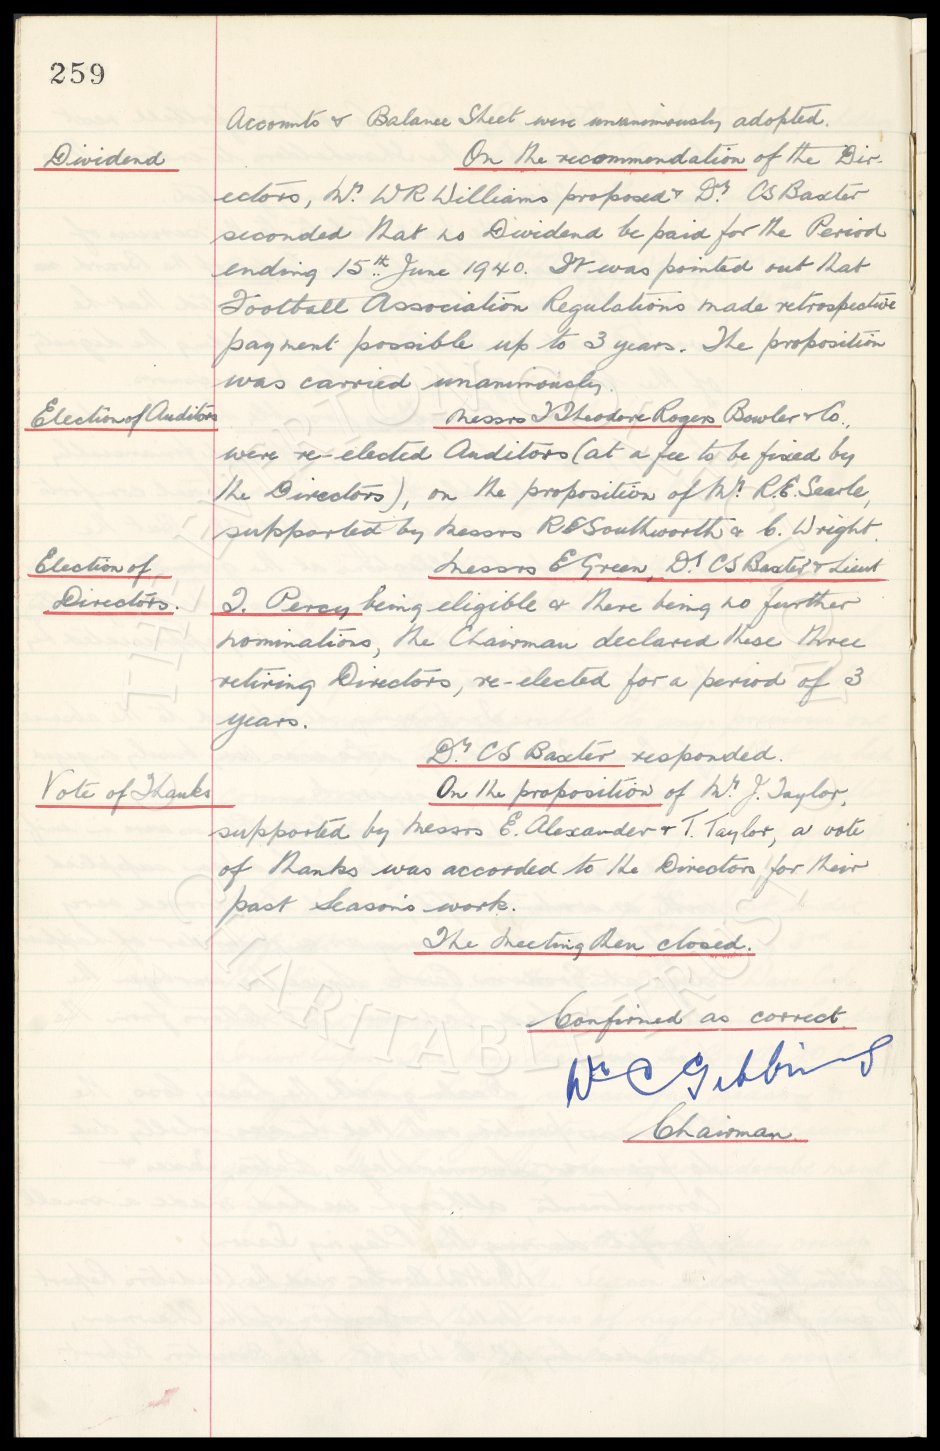 259
Accounts & Balance Sheet were unanimously adopted.
Dividend
On the recommendation of the Dir-
ectors, Mr. W R Williams proposed & Dr. C S Baxter
seconded that no Dividend be paid for the Period
ending 15th June 1940. It was pointed out that
Football Association Regulations made retrospective
payment possible up to 3 years. The proposition
was carried unanimously.
Election of Auditors
Messrs T Theodore Rogers Bowler & Co.,
were re-elected Auditors (at a fee to be fixed by
the Directors), on the proposition of Mr. R.E. Searle,
supported by Messrs R E Southworth & C. Wright.
Election of
Directors.
Messrs E Green, Dr. C S Baxter & Lieut
T. Percy being eligible & there being no further
nominations, the Chairman declared these three
retiring Directors, re-elected for a period of 3
years.
Dr. C S Baxter responded.
Vote of Thanks
On the proposition of Mr. J. Taylor,
supported by Messrs E. Alexander & T. Taylor, a vote
of thanks was accorded to the Directors for their
past Season's work.
The Meeting then closed.
Confirmed as correct
Wm C Gibbins
Chairman.
THE EVERTON COLLECTION
CHARITABLE TRUST